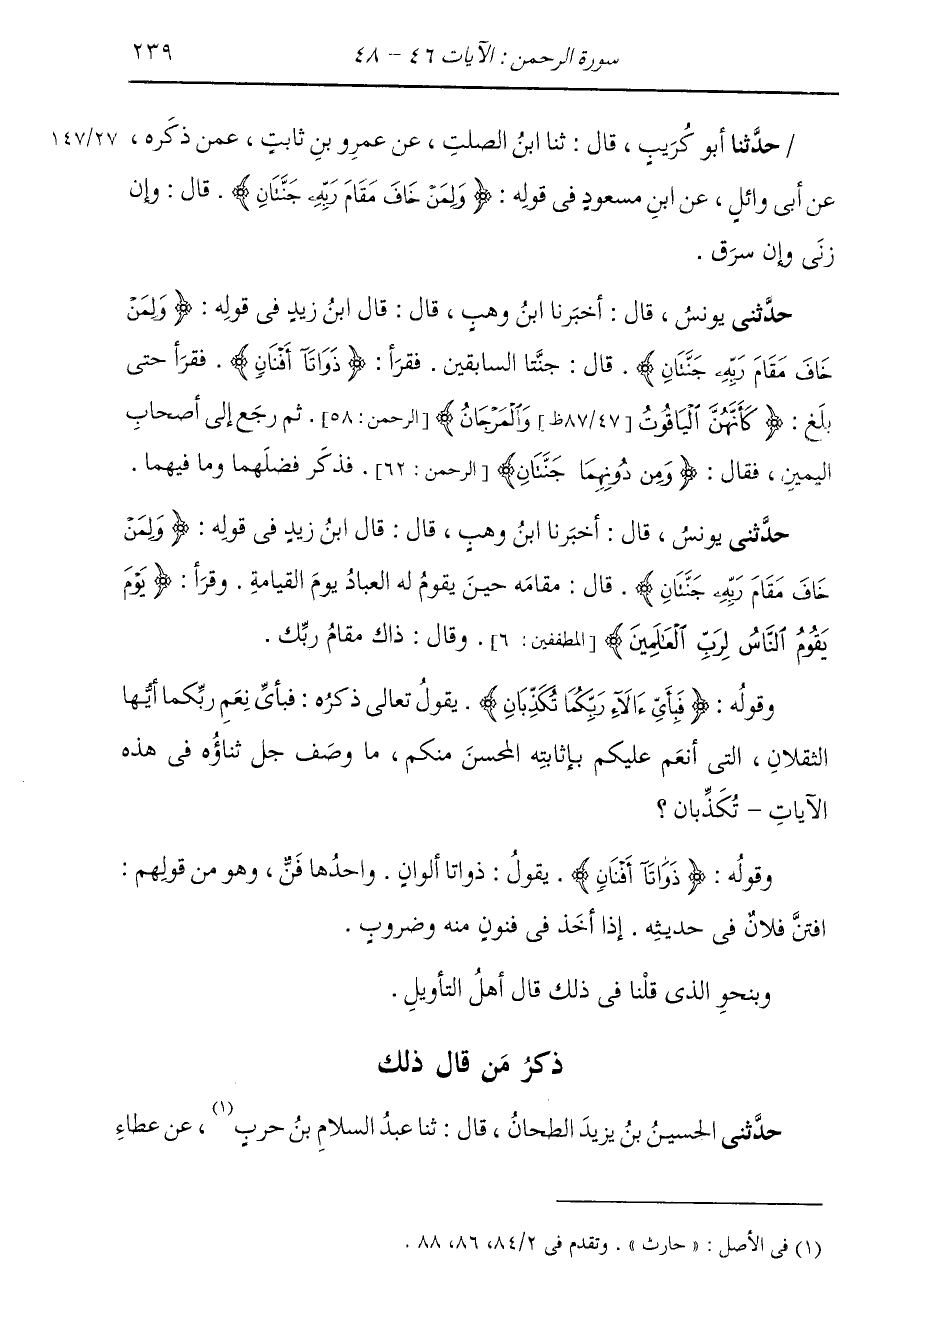 سورة الرحمن : الآيات ٤٦ - ٤٨ ٢٣٩
/ حدَّثنا أبو كُرَيبٍ ، قال : ثنا ابنُ الصلتِ ، عن عمرِو بنِ ثابتٍ ، عمن ذكَره ، ١٤٧/٢٧
عن أبى وائلٍ ، عن ابنِ مسعودٍ فى قولِه : ﴿ وَلِمَنْ خَافَ مَقَامَ رَبِّهِۦ جَنَّتَانِ ﴾ . قال : وإن
زنَى وإن سرَق .
حدَّثنى يونسُ ، قال : أخبَرنا ابنُ وهبٍ ، قال : قال ابنُ زيدٍ فى قولِه : ﴿ وَلِمَنْ
خَافَ مَقَامَ رَبِّهِۦ جَنَّتَانِ ﴾ . قال : جنَّتا السابقين . فقرَأ : ﴿ ذَوَاتَآ أَفْنَانٍ ﴾ . فقرَأ حتى
بلَغ : ﴿ كَأَنَّهُنَّ ٱلْيَاقُوتُ [٨٧/٤٧ظ] وَٱلْمَرْجَانُ ﴾ [الرحمن : ٥٨] . ثم رجَع إلى أصحابِ
اليمينِ ، فقال : ﴿ وَمِن دُونِهِمَا جَنَّتَانِ﴾ [الرحمن : ٦٢] . فذكَر فضلَهما وما فيهما .
حدَّثنى يونسُ ، قال : أخبَرنا ابنُ وهبٍ ، قال : قال ابنُ زيدٍ فى قولِه : ﴿ وَلِمَنْ
خَافَ مَقَامَ رَبِّهِۦ جَنَّتَانِ ﴾ . قال : مقامَه حينَ يقومُ له العبادُ يومَ القيامةِ . وقرَأ : ﴿ يَوْمَ
يَقُومُ ٱلنَّاسُ لِرَبِّ ٱلْعَٰلَمِينَ ﴾ [المطففين : ٦] . وقال : ذاك مقامُ ربِّك .
وقولُه : ﴿ فَبِأَيِّ ءَالَآءِ رَبِّكُمَا تُكَذِّبَانِ ﴾ . يقولُ تعالى ذكرُه : فبأىِّ نِعَمِ ربِّكما أيُّها
الثقلانِ ، التى أنعَم عليكم بإثابتِه المحسنَ منكم ، ما وصَف جل ثناؤُه فى هذه
الآياتِ - تُكَذِّبان ؟
وقولُه : ﴿ ذَوَاتَآ أَفْنَانٍ ﴾ . يقولُ : ذواتا ألوانٍ . واحدُها فَنٌّ ، وهو من قولِهم :
افتنَّ فلانٌ فى حديثِه . إذا أخَذ فى فنونٍ منه وضروبٍ .
وبنحوِ الذى قلْنا فى ذلك قال أهلُ التأويلِ .
ذكرُ مَن قال ذلك
حدَّثنى الحسينُ بنُ يزيدَ الطحانُ ، قال : ثنا عبدُ السلامِ بنُ حربٍ (١) ، عن عطاءِ
(١) فى الأصل : « حارث » . وتقدم فى ٨٤/٢، ٨٦، ٨٨ .